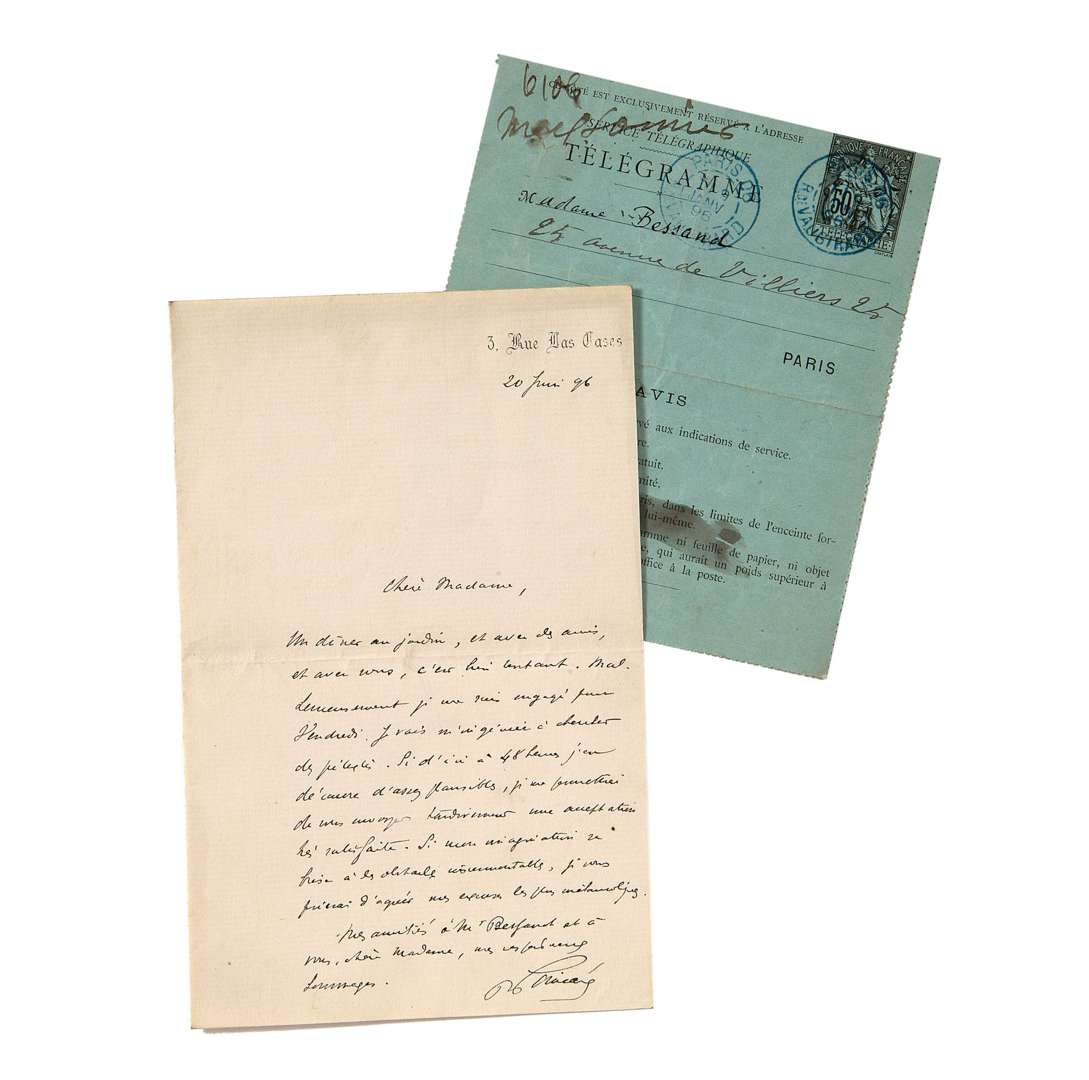 6106
CE CÔTÉ EST EXCLUSIVEMENT RÉSERVÉ A L'ADRESSE
SERVICE TÉLÉGRAPHIQUE
TÉLÉGRAMME
Madame Bessand
25 avenue de Villiers 25
PARIS
AVIS
vé aux indications de service.
re.
atuit.
mité.
ris, dans les limites de l'enceinte for-
lui-même.
mme ni feuille de papier, ni objet
e, qui aurait un poids supérieur à
office à la poste.
PARIS
JANV
96
50
3. Rue Las Cases
20 Juin 96
Chère Madame,
Un dîner au jardin, et avec des amis,
et avec vous, c'est bien tentant. Mal-
heureusement je me suis engagé pour
Vendredi. Je vais m'ingénier à chercher
des prétextes. Si d'ici à 48 heures j'en
découvre d'assez plausibles, je me permettrai
de vous envoyer tardivement une acceptation
très satisfaite. Si mon imagination se
brise à des obstacles insurmontables, je vous
prierai d'agréer mes excuses les plus mélancoliques.
Mes amitiés à Mr Bessand et à
vous, chère Madame, mes respectueux
hommages.
R Poincaré